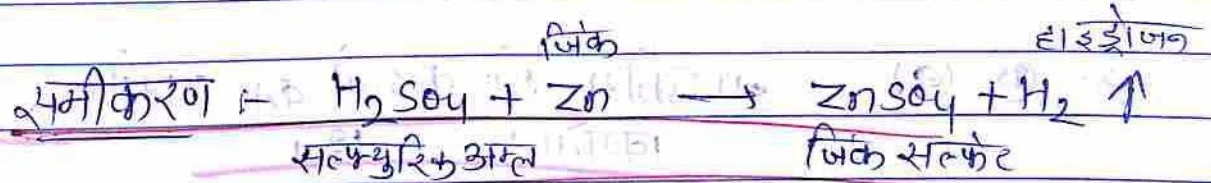 जिंक हाइड्रोजन
समीकरण :- H₂SO₄ + Zn → ZnSO₄ + H₂ ↑
सल्फ्युरिक अम्ल जिंक सल्फेट